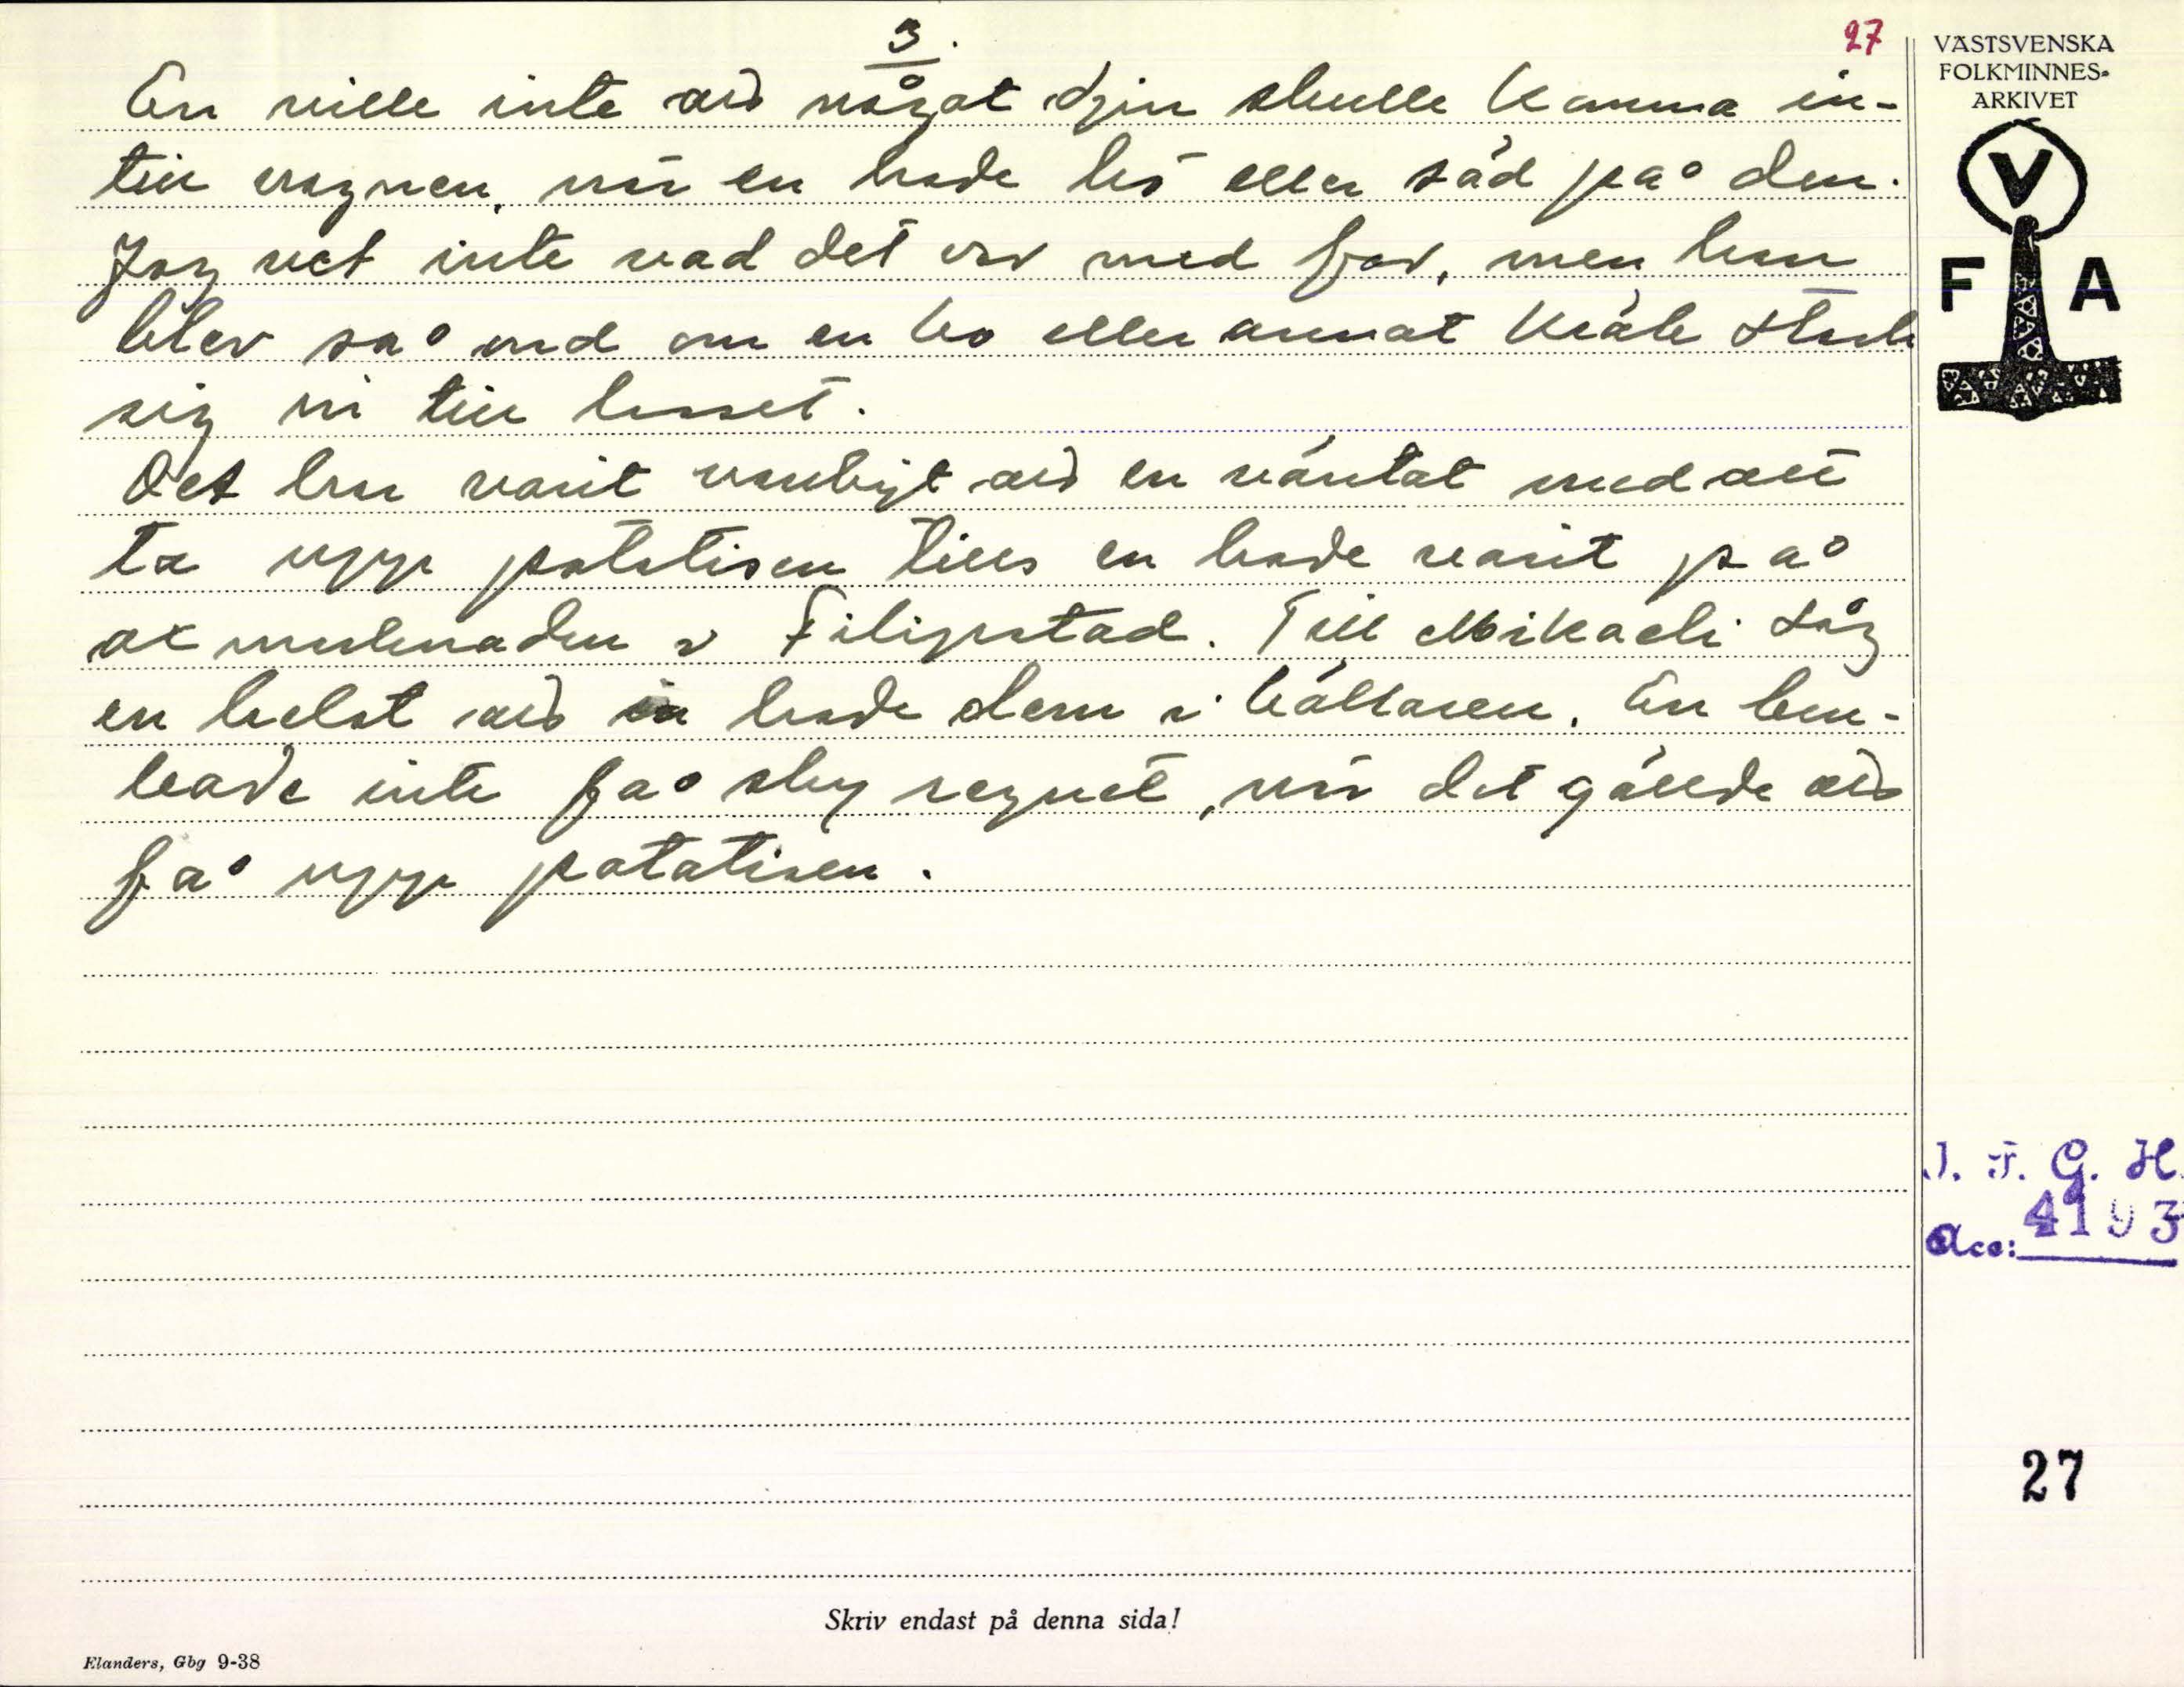 3.
27
En ville inte att något djur skulle komma in-
till vagnen, när en hade hö eller säd på den.
Jag vet inte vad det var med far, men han
blev så ond om en ko eller annat kräk stack
sig in till lasset.
Det har varit vanligt att en väntat med att
ta upp potatisen tills en hade varit på
oxmarknaden i Filipstad. Till Mikaeli såg
en helst att en hade dem i källaren. En
inte få sky regnet, när det gällde att
få upp potatisen.
VÄSTSVENSKA
FOLKMINNES-
ARKIVET
V
F A
I. F. G. H.
Acc: 4193
27
Skriv endast på denna sida!
Elanders, Gbg 9-38